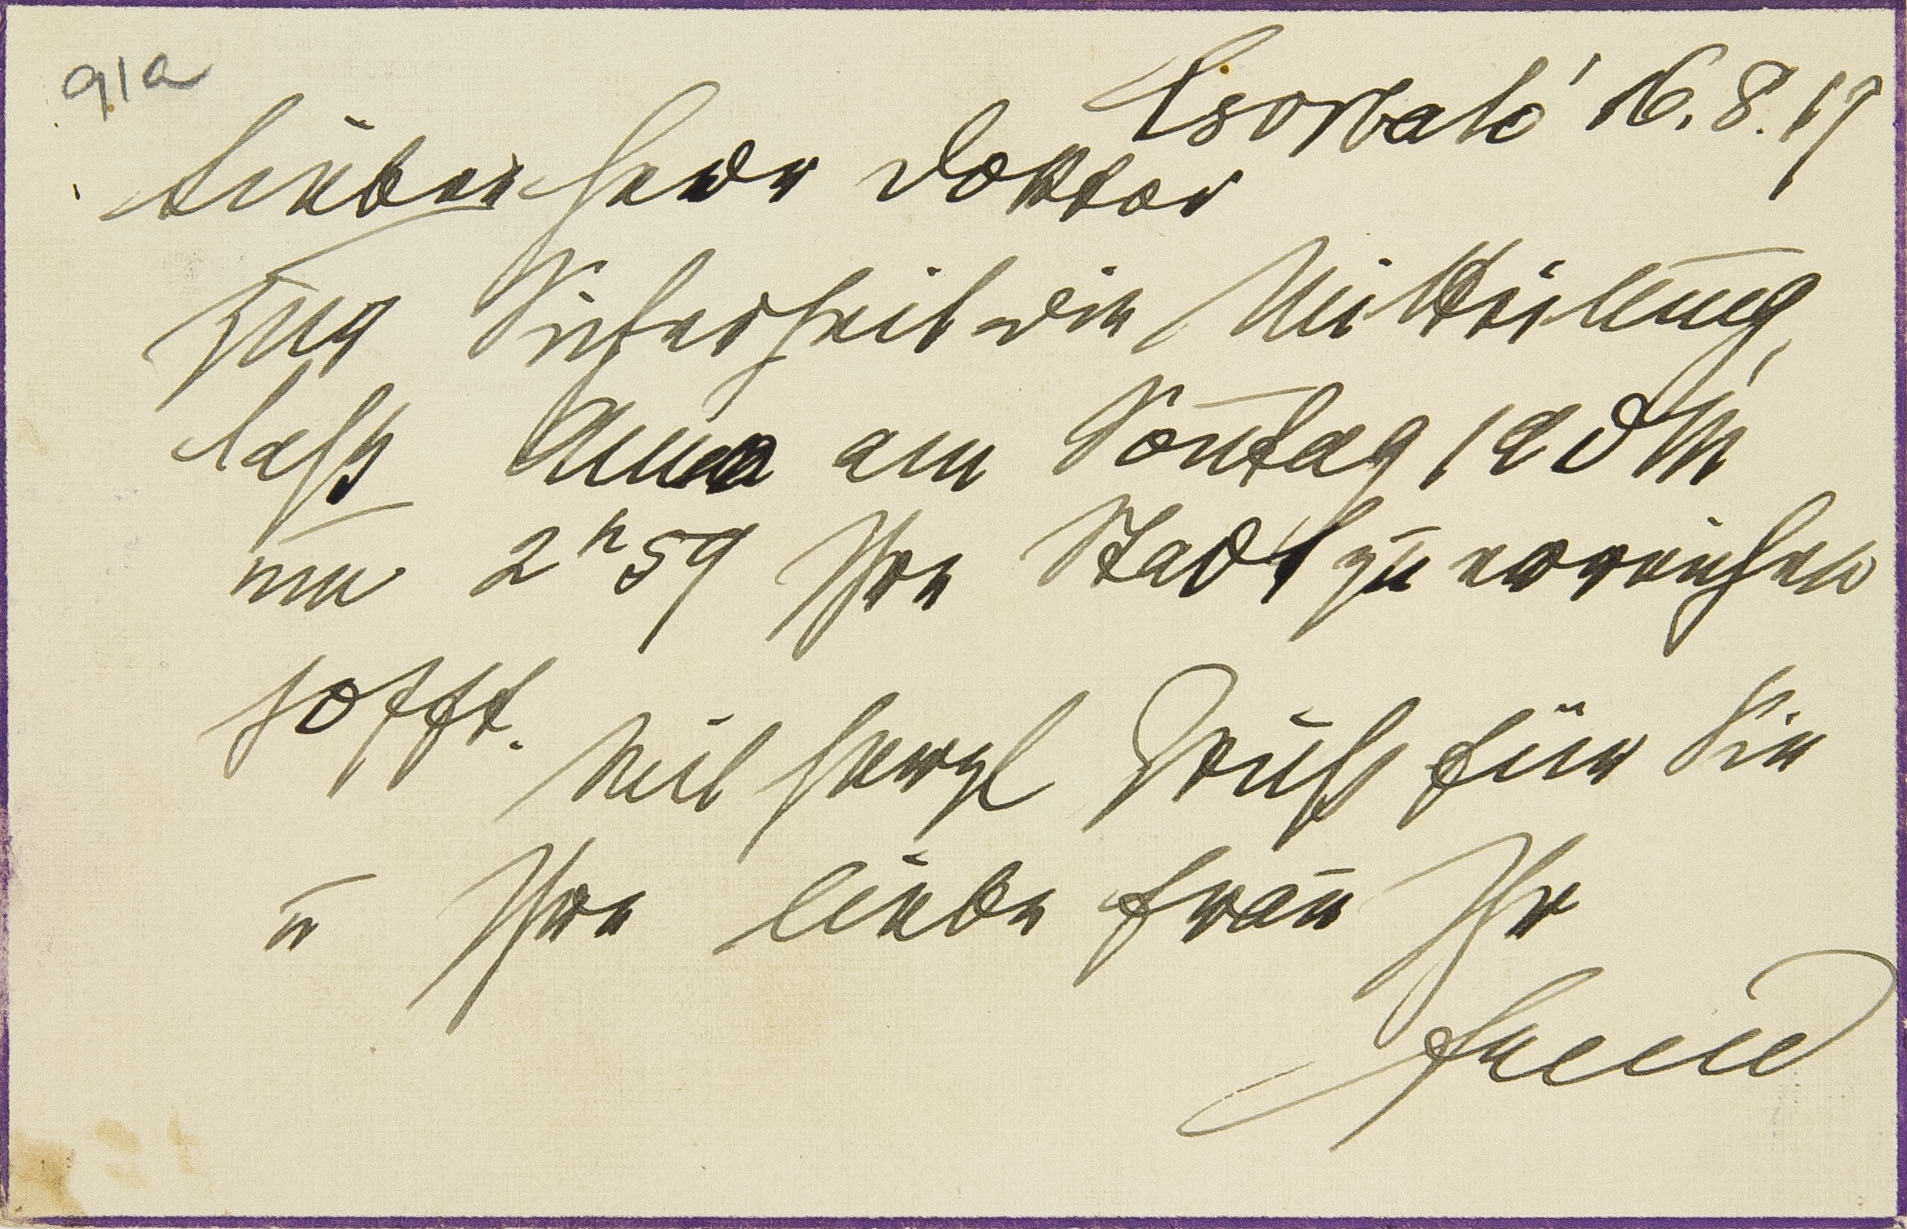 91a
Csorbató 16.8.17
Lieber Herr Doktor
Zur Sicherheit die Mitteilung,
daß Anna am Soñtag 19 d M
um 2h59 Ihre Stadt zu erreichen
hofft.
Mit herzl Gruß für Sie
u Ihre liebe Frau Ihr
Freud